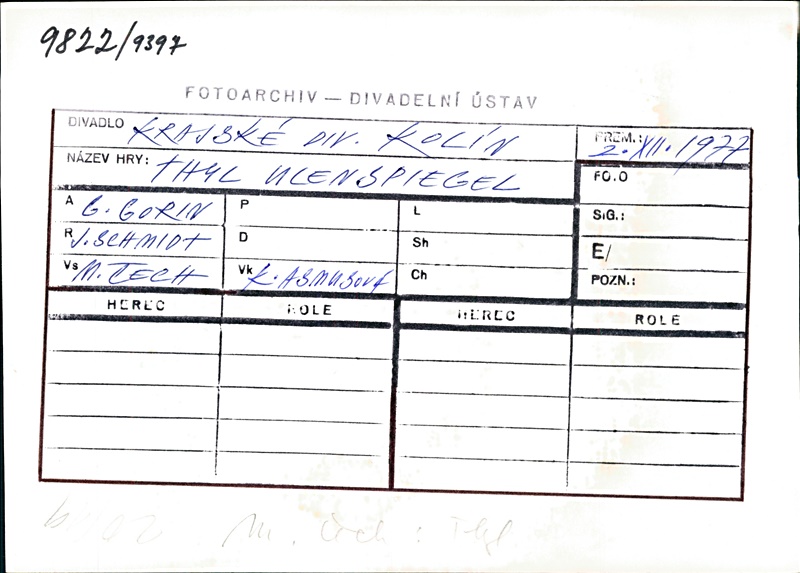 9822/9397
FOTOARCHIV — DIVADELNÍ ÚSTAV
DIVADLO KRAJSKÉ DIV. KOLÍN PREM.: 2. XII. 1977
NÁZEV HRY: THYL ULENSPIEGEL FO.O
A G. GORIN P L SIG.:
R J. SCHMIDT D Sh E/
Vs M. ČECH Vk K. ASMUSOVÁ Ch POZN.:
HEREC ROLE HEREC ROLE
M. Čech : Thyl